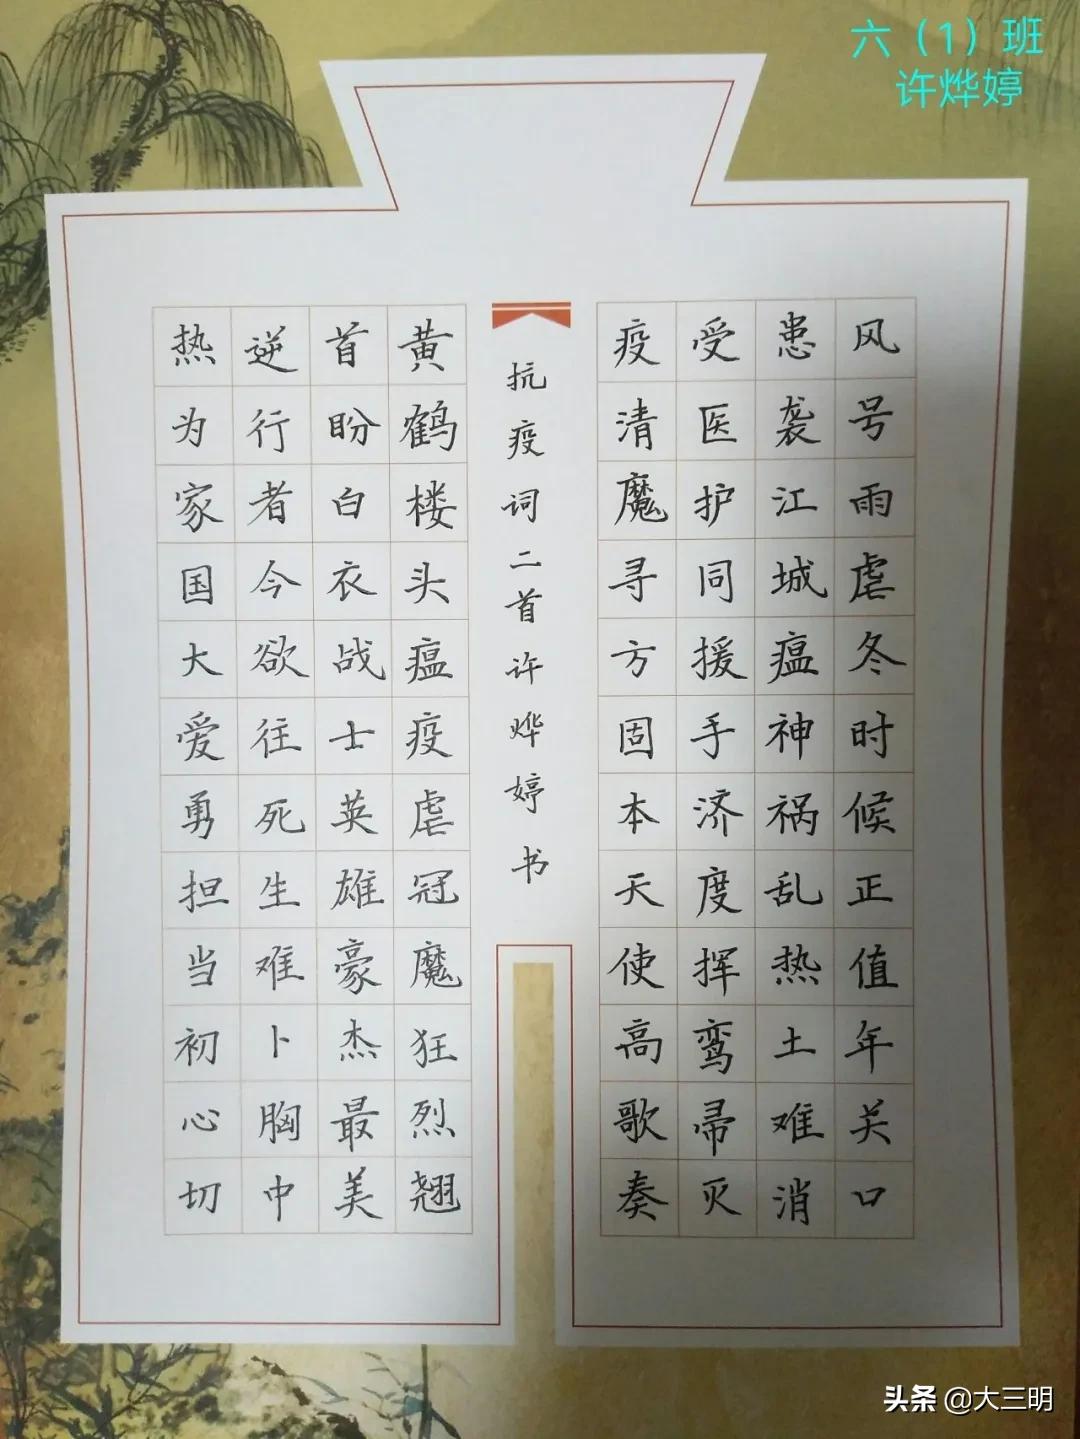 六（1）班
许烨婷
风号雨虐冬时候正值年关口
患袭江城瘟神祸乱热土难消
受医护同援手济度挥鸾帚灭
疫清魔寻方固本天使高歌奏
抗疫词二首许烨婷书
黄鹤楼头瘟疫虐冠魔狂烈翘
首盼白衣战士英雄豪杰最美
逆行者今欲往死生难卜胸中
热为家国大爱勇担当初心切
头条@大三明